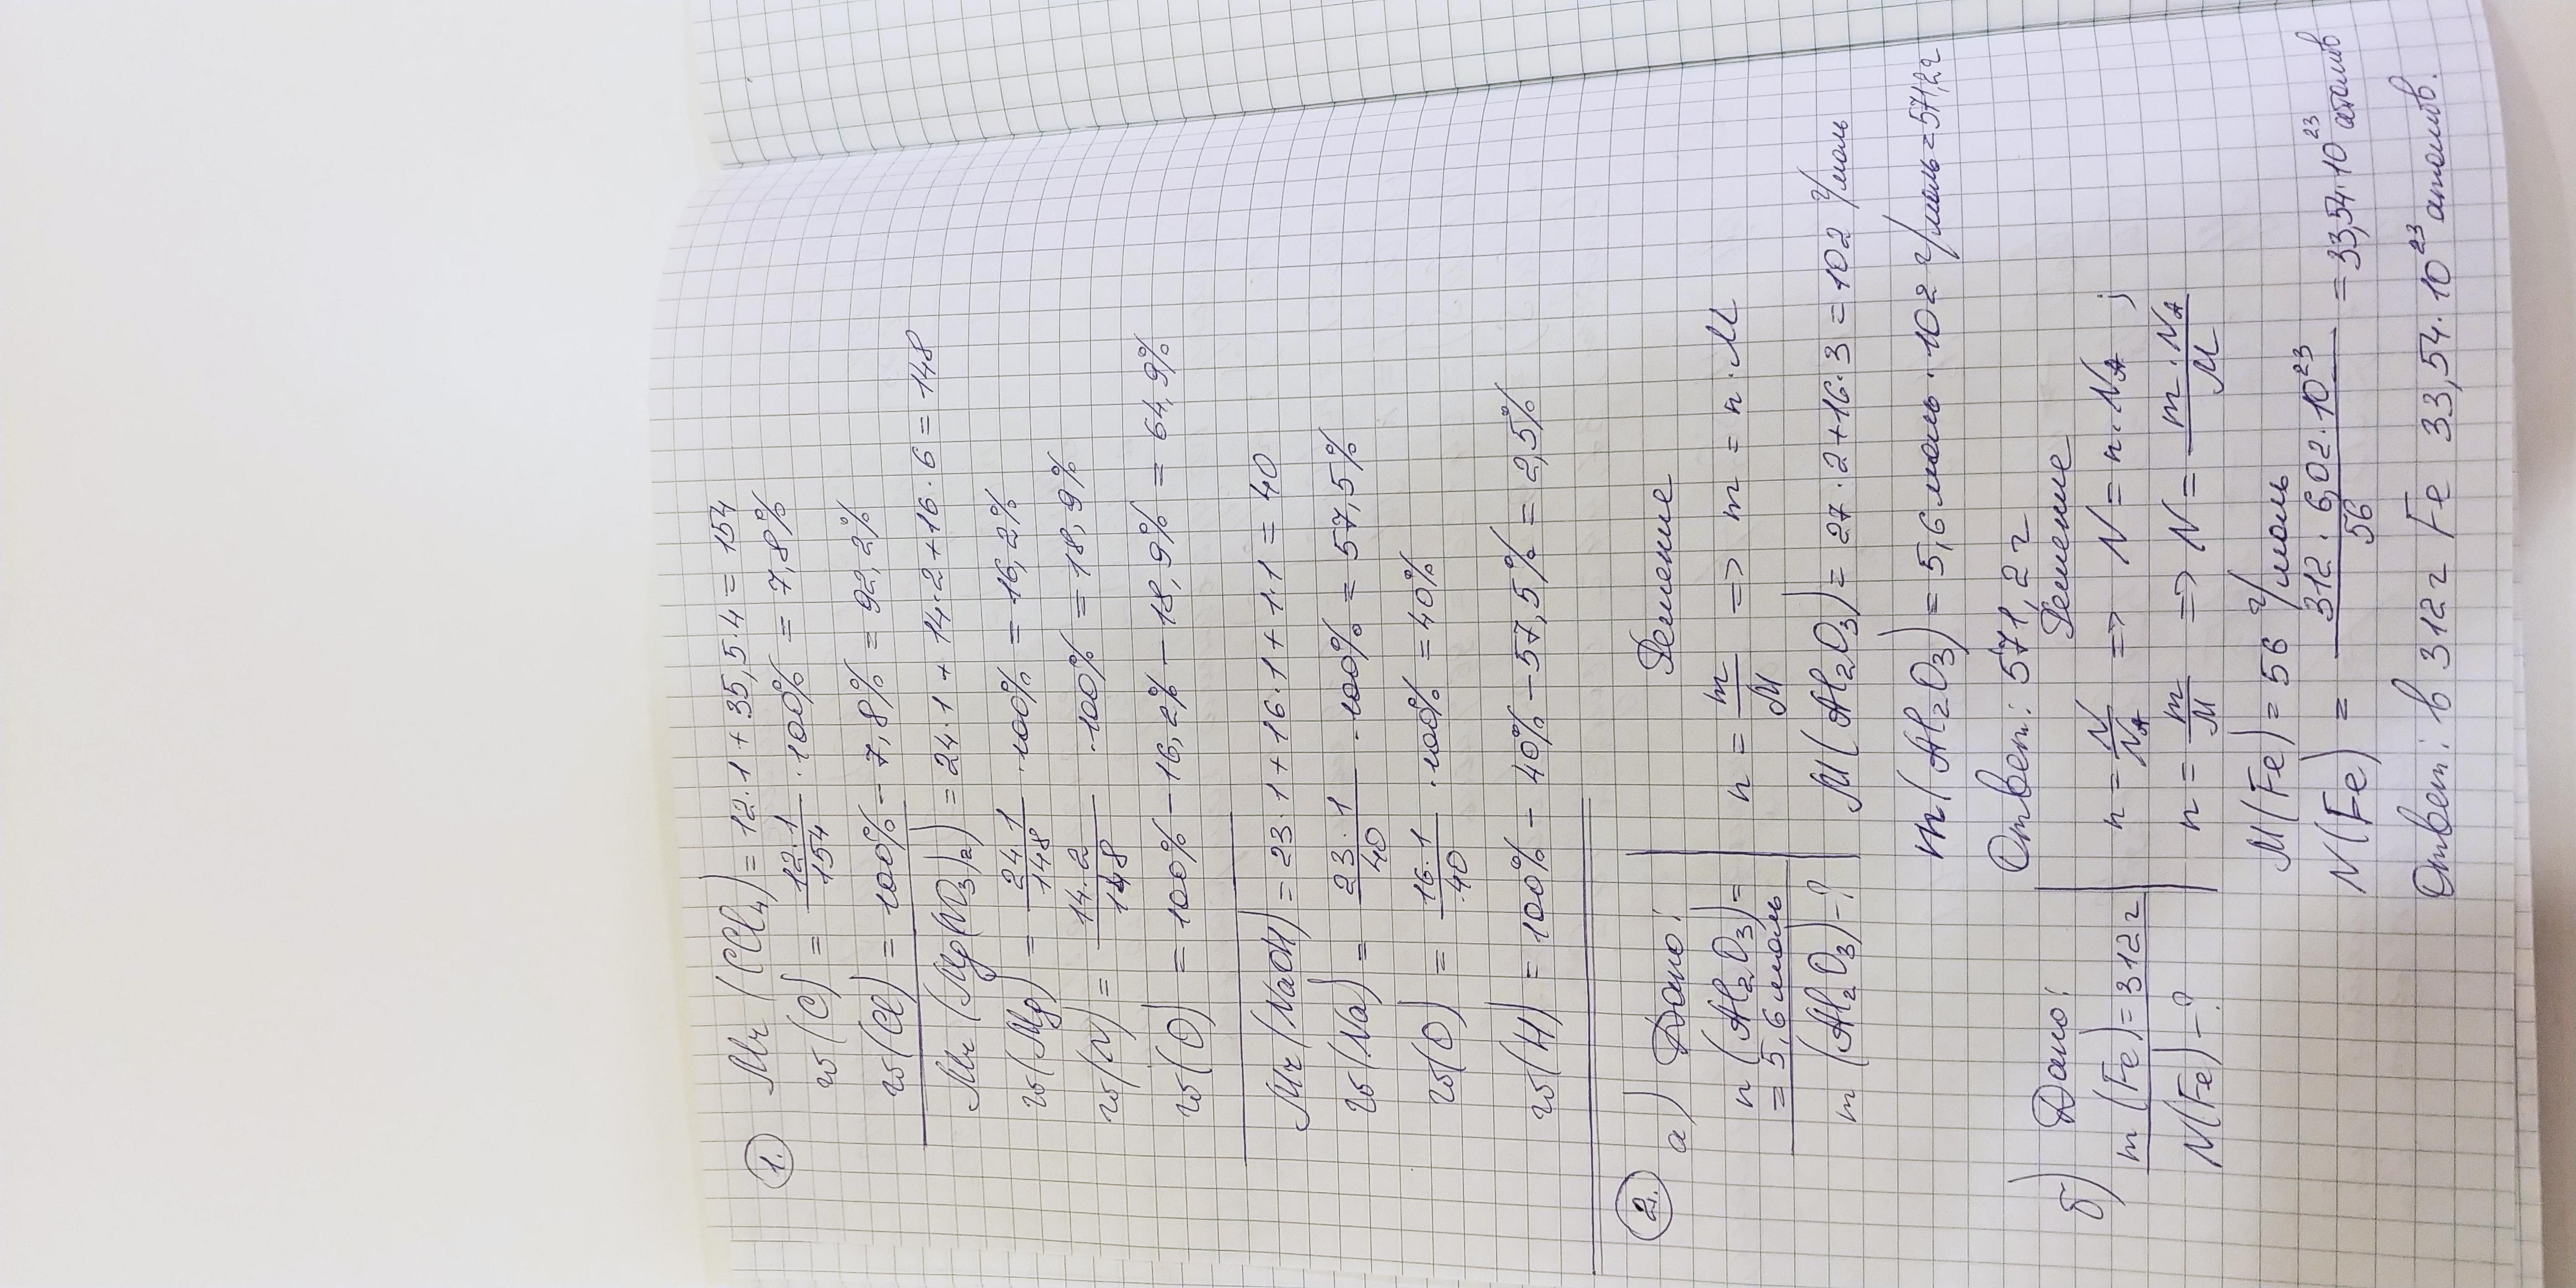 1. Mr (CCl₄) = 12·1 + 35,5·4 = 154
w(C) = 12·1/154 · 100% = 7,8%
w(Cl) = 100% - 7,8% = 92,2%
Mr (Mg(NO₃)₂) = 24·1 + 14·2 + 16·6 = 148
w(Mg) = 24·1/148 · 100% = 16,2%
w(N) = 14·2/148 · 100% = 18,9%
w(O) = 100% - 16,2% - 18,9% = 64,9%
Mr (NaOH) = 23·1 + 16·1 + 1·1 = 40
w(Na) = 23·1/40 · 100% = 57,5%
w(O) = 16·1/40 · 100% = 40%
w(H) = 100% - 40% - 57,5% = 2,5%
2. а) Дано: Решение
n (Al₂O₃) = n = m/M => m = n·M
= 5,6 моль
m (Al₂O₃) - ? M (Al₂O₃) = 27·2 + 16·3 = 102 г/моль
m (Al₂O₃) = 5,6 моль · 102 г/моль = 571,2 г
Ответ: 571,2 г
б) Дано: Решение
m (Fe) = 312 г n = N/Nᴀ => N = n·Nᴀ ;
N(Fe) - ? n = m/M => N = m·Nᴀ/M
M(Fe) = 56 г/моль
N(Fe) = 312·6,02·10²³/56 = 33,54·10²³ атомов
Ответ: в 312 г Fe 33,54·10²³ атомов.